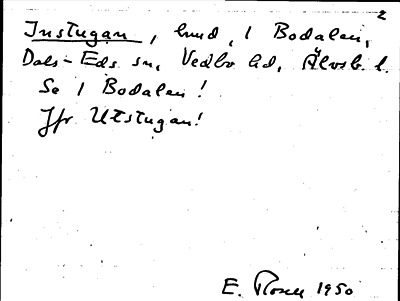 2
Instugan, hmd, 1 Bodalen,
Dals-Eds sn, Vedbo hd, Älvsb. l.
Se 1 Bodalen!
Jfr Utstugan!
E. 1950